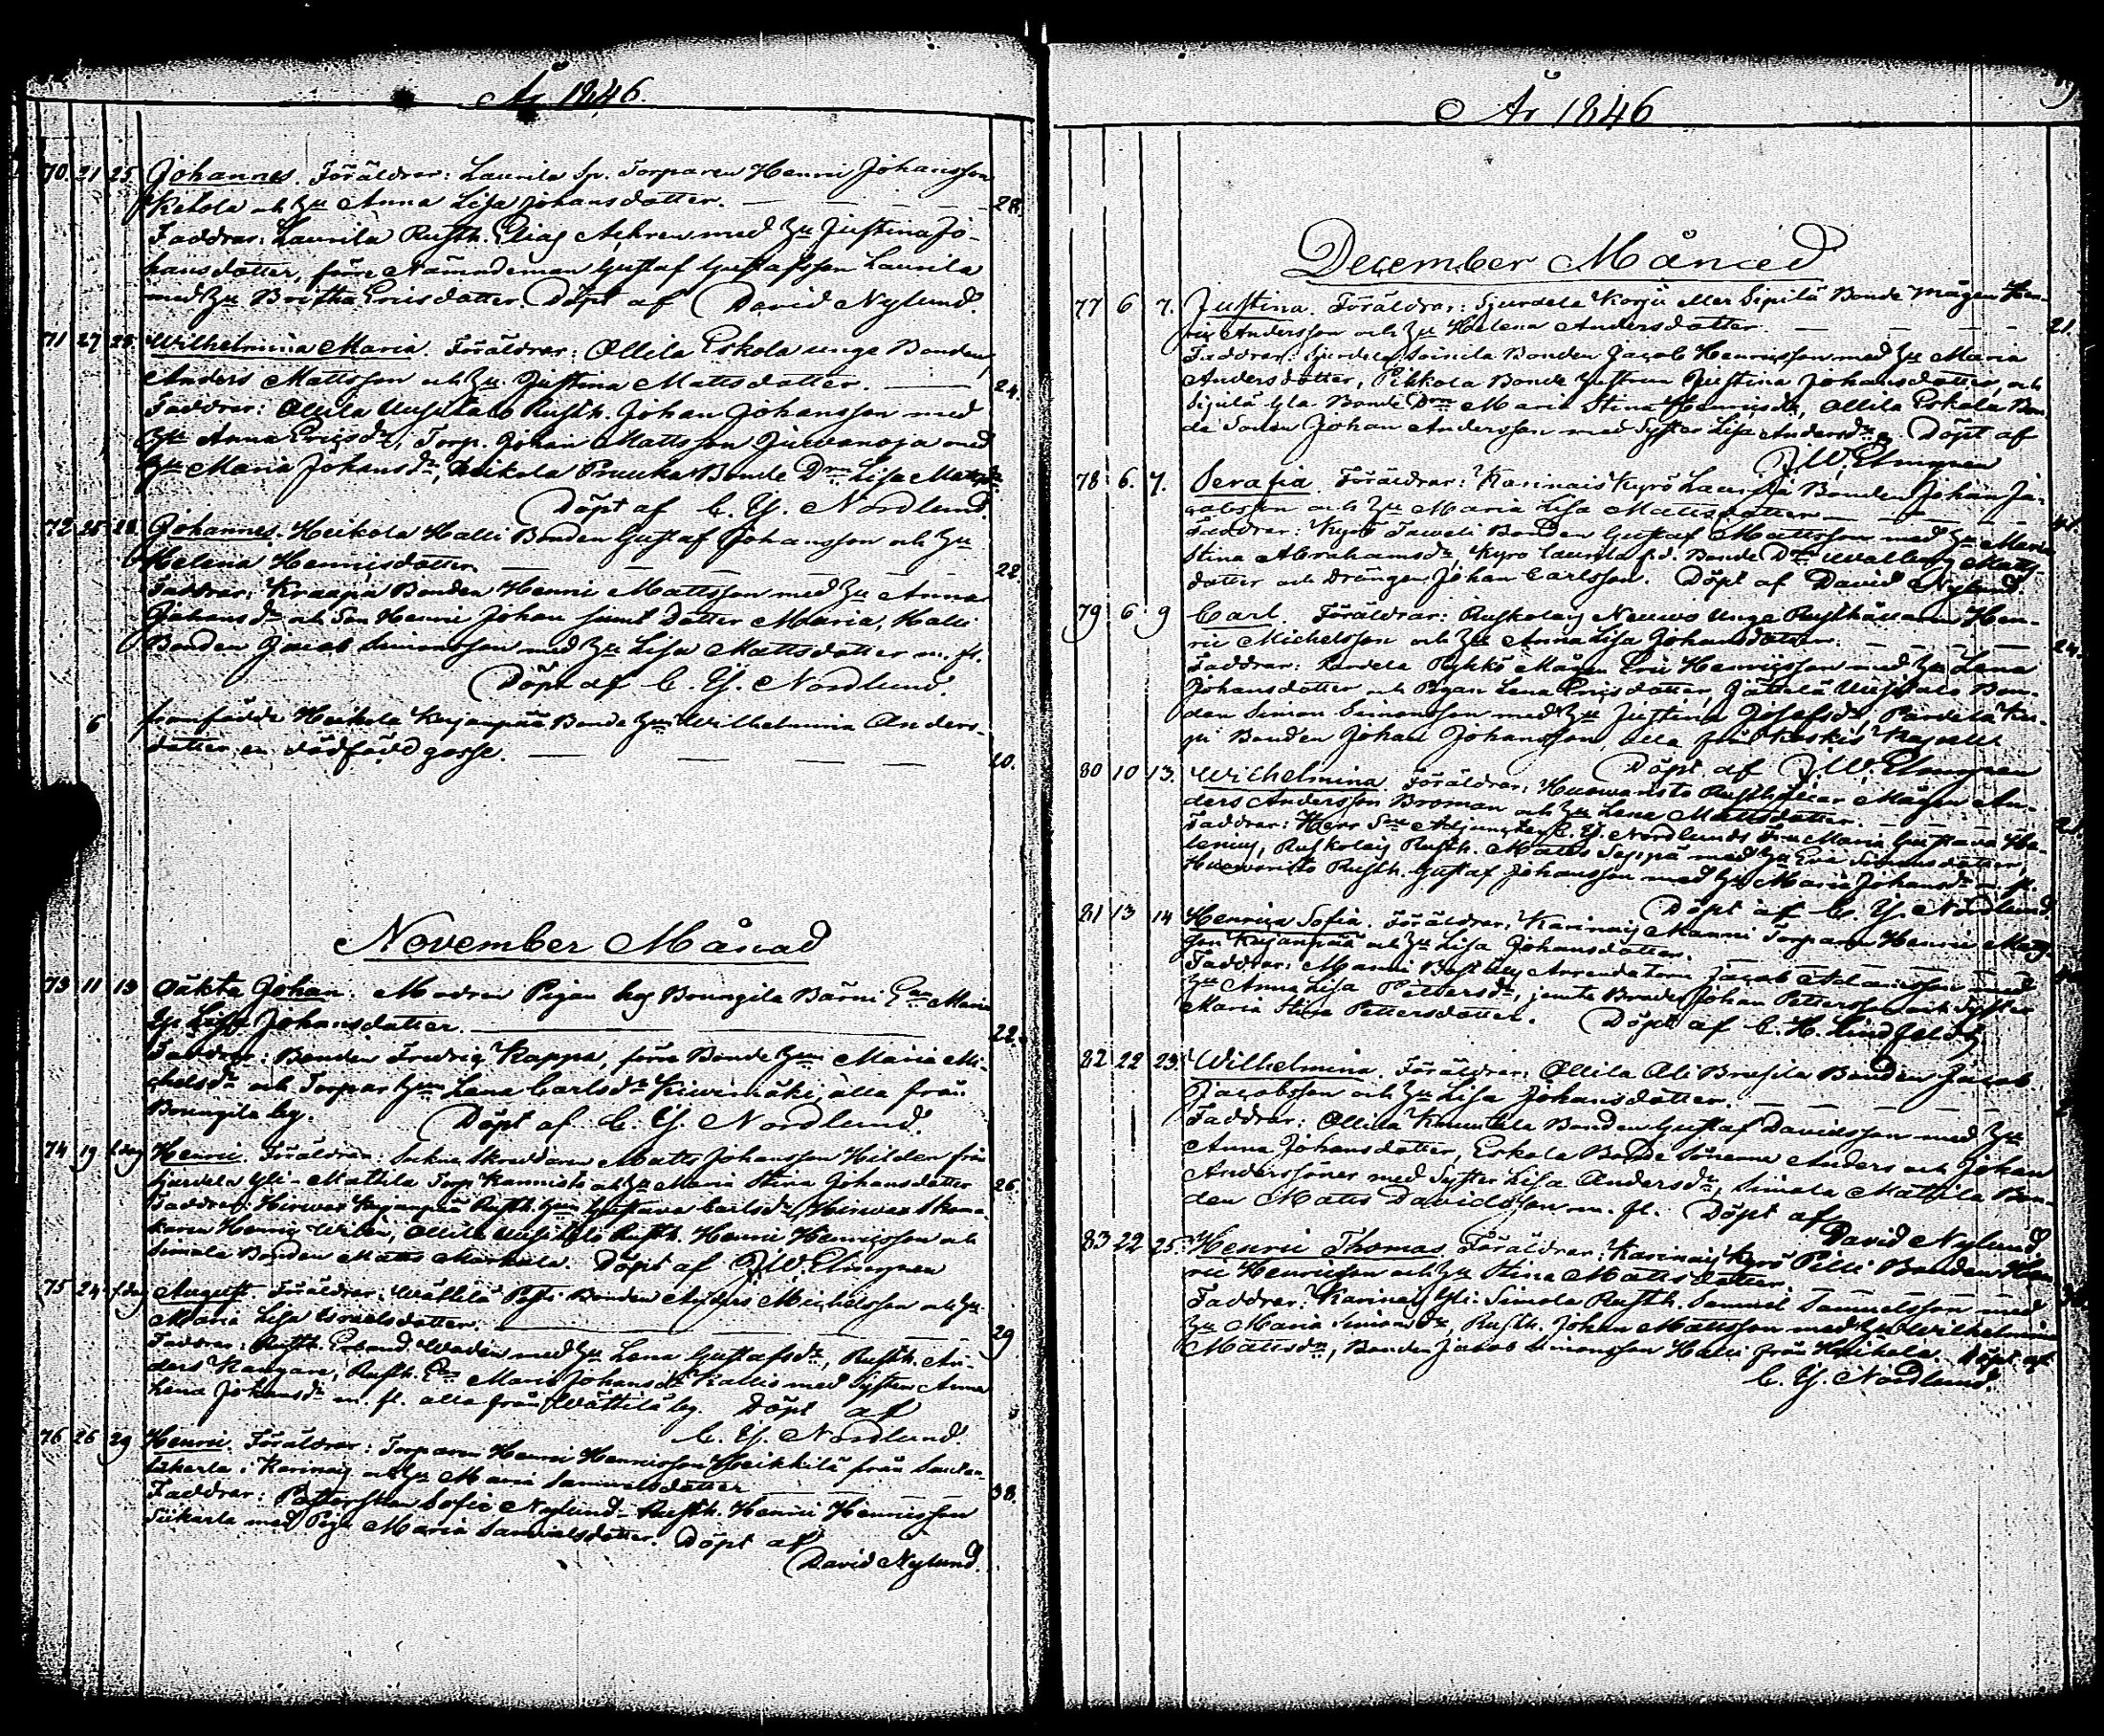 År 1846.
70. 21 25 Johannes. Föräldrar: Laurila Sp. Torparen Henric Johansson
Ketola och Hu Anna Lisa Johansdotter. 28.
Faddrar: Laurila Rusth. Elias Achrén med Hu Justina Jo-
hansdotter, förre Nämndeman Gustaf Gustafsson Laurila
med Hu Britha Ericsdotter. Döpt af David Nylund.
71 27 28. Wilhelmina Maria. Föräldrar: Ollila Eskola unge Bonden
Anders Mattsson och Hu Justina Mattsdotter. 24.
Faddrar: Ollila Uusitalo Rusth. Johan Johansson med
Hu Anna Ericsdr, Torp. Johan Mattsson Juwanoja med
Hu Maria Johansdr, Heikola Prunka Bonde Drn Lisa Mattsdr.
Döpt af C. G. Nordlund.
72 25 28. Johannes. Heikola Halli Bonden Gustaf Johansson och Hu
Helena Henricsdotter. 22.
Faddrar: Kraapa Bonden Henric Mattsson med Hu Anna
Johansdr och Son Henric Johan samt dotter Maria, Halli
Bonden Jacob Simonsson med Hu Lisa Mattsdotter m. fl.
Döpt af C. G. Nordlund.
6 framfödde Heikola Kujanpää Bonde Hun Wilhelmina Anders-
dotter en dödfödd gosse. 10.
November Månad
73 11 13 Oäkta Johan. Modren Pigan hos Brungila Bärni Enn Maria
Lisa Johansdotter. 22.
Faddrar: Bonden Fredric Kappa, förre Bonde Hun Maria Mi-
chelsdr och Torpar Hun Lena Carlsdr Kiwimäki, alla från
Brungila by. Döpt af C. G. Nordlund.
74 19 s. dag Henric. Föräldrar: Sockne Skräddaren Matts Johansson Hilden från
Gjerdela Yli-Mattila Torp Kannisto och Hu Maria Stina Johansdotter 26
Faddrar: Hirwas Kujanpää Rusth. Hun Gustava Carlsdr, Hirwas Skoma-
karen Henric Wilén, Ollila Uusitalo Rusth. Henric Henricsson och
Simala Bonden Matts Markula. Döpt af J. W. Elmgren
75 24 s. dag August. Föräldrar: Wättilä Bonden Anders Michelsson och Hu
Maria Lisa Israelsdotter. 29
Faddrar: Rusth. Wadén med Hu Lena Gustafsdr, Rusth. An-
ders Kangare, Rusth. Maria Johansdr Kallis med Syster Anna
Lena Johansdr m. fl. alla från Wättilä by. Döpt af
C. G. Nordlund.
76 26 29 Henric. Föräldrar: Torparen Henric Henricsson Heikkilä från
i Karinais och Hu Maria Samuelsdotter 38.
Faddrar: Sofie Nylund, Rusth. Henric Henricsson
med Pigan Maria Samuelsdotter. Döpt af
David Nylund.
År 1846
December Månad
77 6 7. Justina. Föräldrar: Gjerdela Korju eller Sipilä Bonde Mågen Hen-
ric Andersson och Hu Helena Andersdotter 21.
Faddrar: Gjerdela Bonden Jacob Henricsson med Hu Maria
Andersdotter, Pihkola Bonde Hustrun Justina Johansdotter, och
Sipilä Gla. Bonde Drn Maria Stina Henricsdr, Ollila Eskola Bon-
de Sonen Johan Andersson med Syster Lisa Andersdr. Döpt af
J. W. Elmgren
78 6. 7. Serafia. Föräldrar: Karinais Kyrö Laurila Bonden Johan Ja-
cobsson och Hu Maria Lisa Mattsdotter 41.
Faddrar: Kyrö Taweli Bonden Gustaf Mattsson med Hu Maria
Stina Abrahamsdr, Kyrö Laurila f.d. Bonde Drn Walborg Matts-
dotter och Drängen Johan Carlsson. Döpt af David Nylund.
79 6 9 Carl. Föräldrar: Ruskolais Neuwo Unge Rusthållaren Hen-
ric Michelsson och Hu Anna Lisa Johansdotter. 24.
Faddrar: Pykkö Mågen Eric Henricsson med Hu Lena
Johansdotter och Pigan Lena Ericsdotter, Jättelä Uusitalo Bon-
den Simon Simonsson med Hu Justina Josefsdr, Pardela
Bonden Johan Johansson, alla från Koskis Kapell.
Döpt af J. W. Elmgren
80 10 13. Wilhelmina. Föräldrar: Huowaristo Rusthållar Mågen An-
ders Andersson Broman och Hu Lena Mattsdotter. 21
Faddrar: Herr Adjuncten C. G. Nordlunds Fru Maria Gustava He-
lenius, Ruskolais Rusth. Matts Seppä med Hu Eva Simonsdotter,
Huowaristo Rusth. Gustaf Johansson med Hu Maria Johansdr m. fl.
Döpt af C. G. Nordlund.
81 13 14 Henrica Sofia. Föräldrar: Karinais Manni Torparen Henric Matts-
son Kujanpää och Hu Lisa Johansdotter.
Faddrar: Manni Arrendatorn Jacob Adamsson med
Hu Anna Lisa Pettersdr, jemte Broder Johan Pettersson och Syster
Maria Stina Pettersdotter. Döpt af C. H. Lindfeldt
82 22 23. Wilhelmina. Föräldrar: Ollila Ali Brusila Bonden Jacob
Jacobsson och Hu Lisa Johansdotter.
Faddrar: Ollila Knuutila Bonden Gustaf Davidsson med Hu
Anna Johansdotter, Eskola Bonde Sönerne Anders och Johan
Anderssöner med Syster Lisa Andersdr, Simala Mattila Bon-
den Matts Davidsson m. fl. Döpt af
David Nylund.
83 22 25. Henric Thomas. Föräldrar: Karinais Kyrö Pilli Bonden Hen-
ric Henricsson och Hu Stina Mattsdotter
Faddrar: Karinais Yli-Simola Rusth. Samuel Samuelsson med
Hu Maria Simonsdr, Rusth. Johan Mattsson med Hu Wilhelmina
Mattsdr, Bonden Jacob Simonsson Halli från Heikola. Döpt af
C. G. Nordlund.